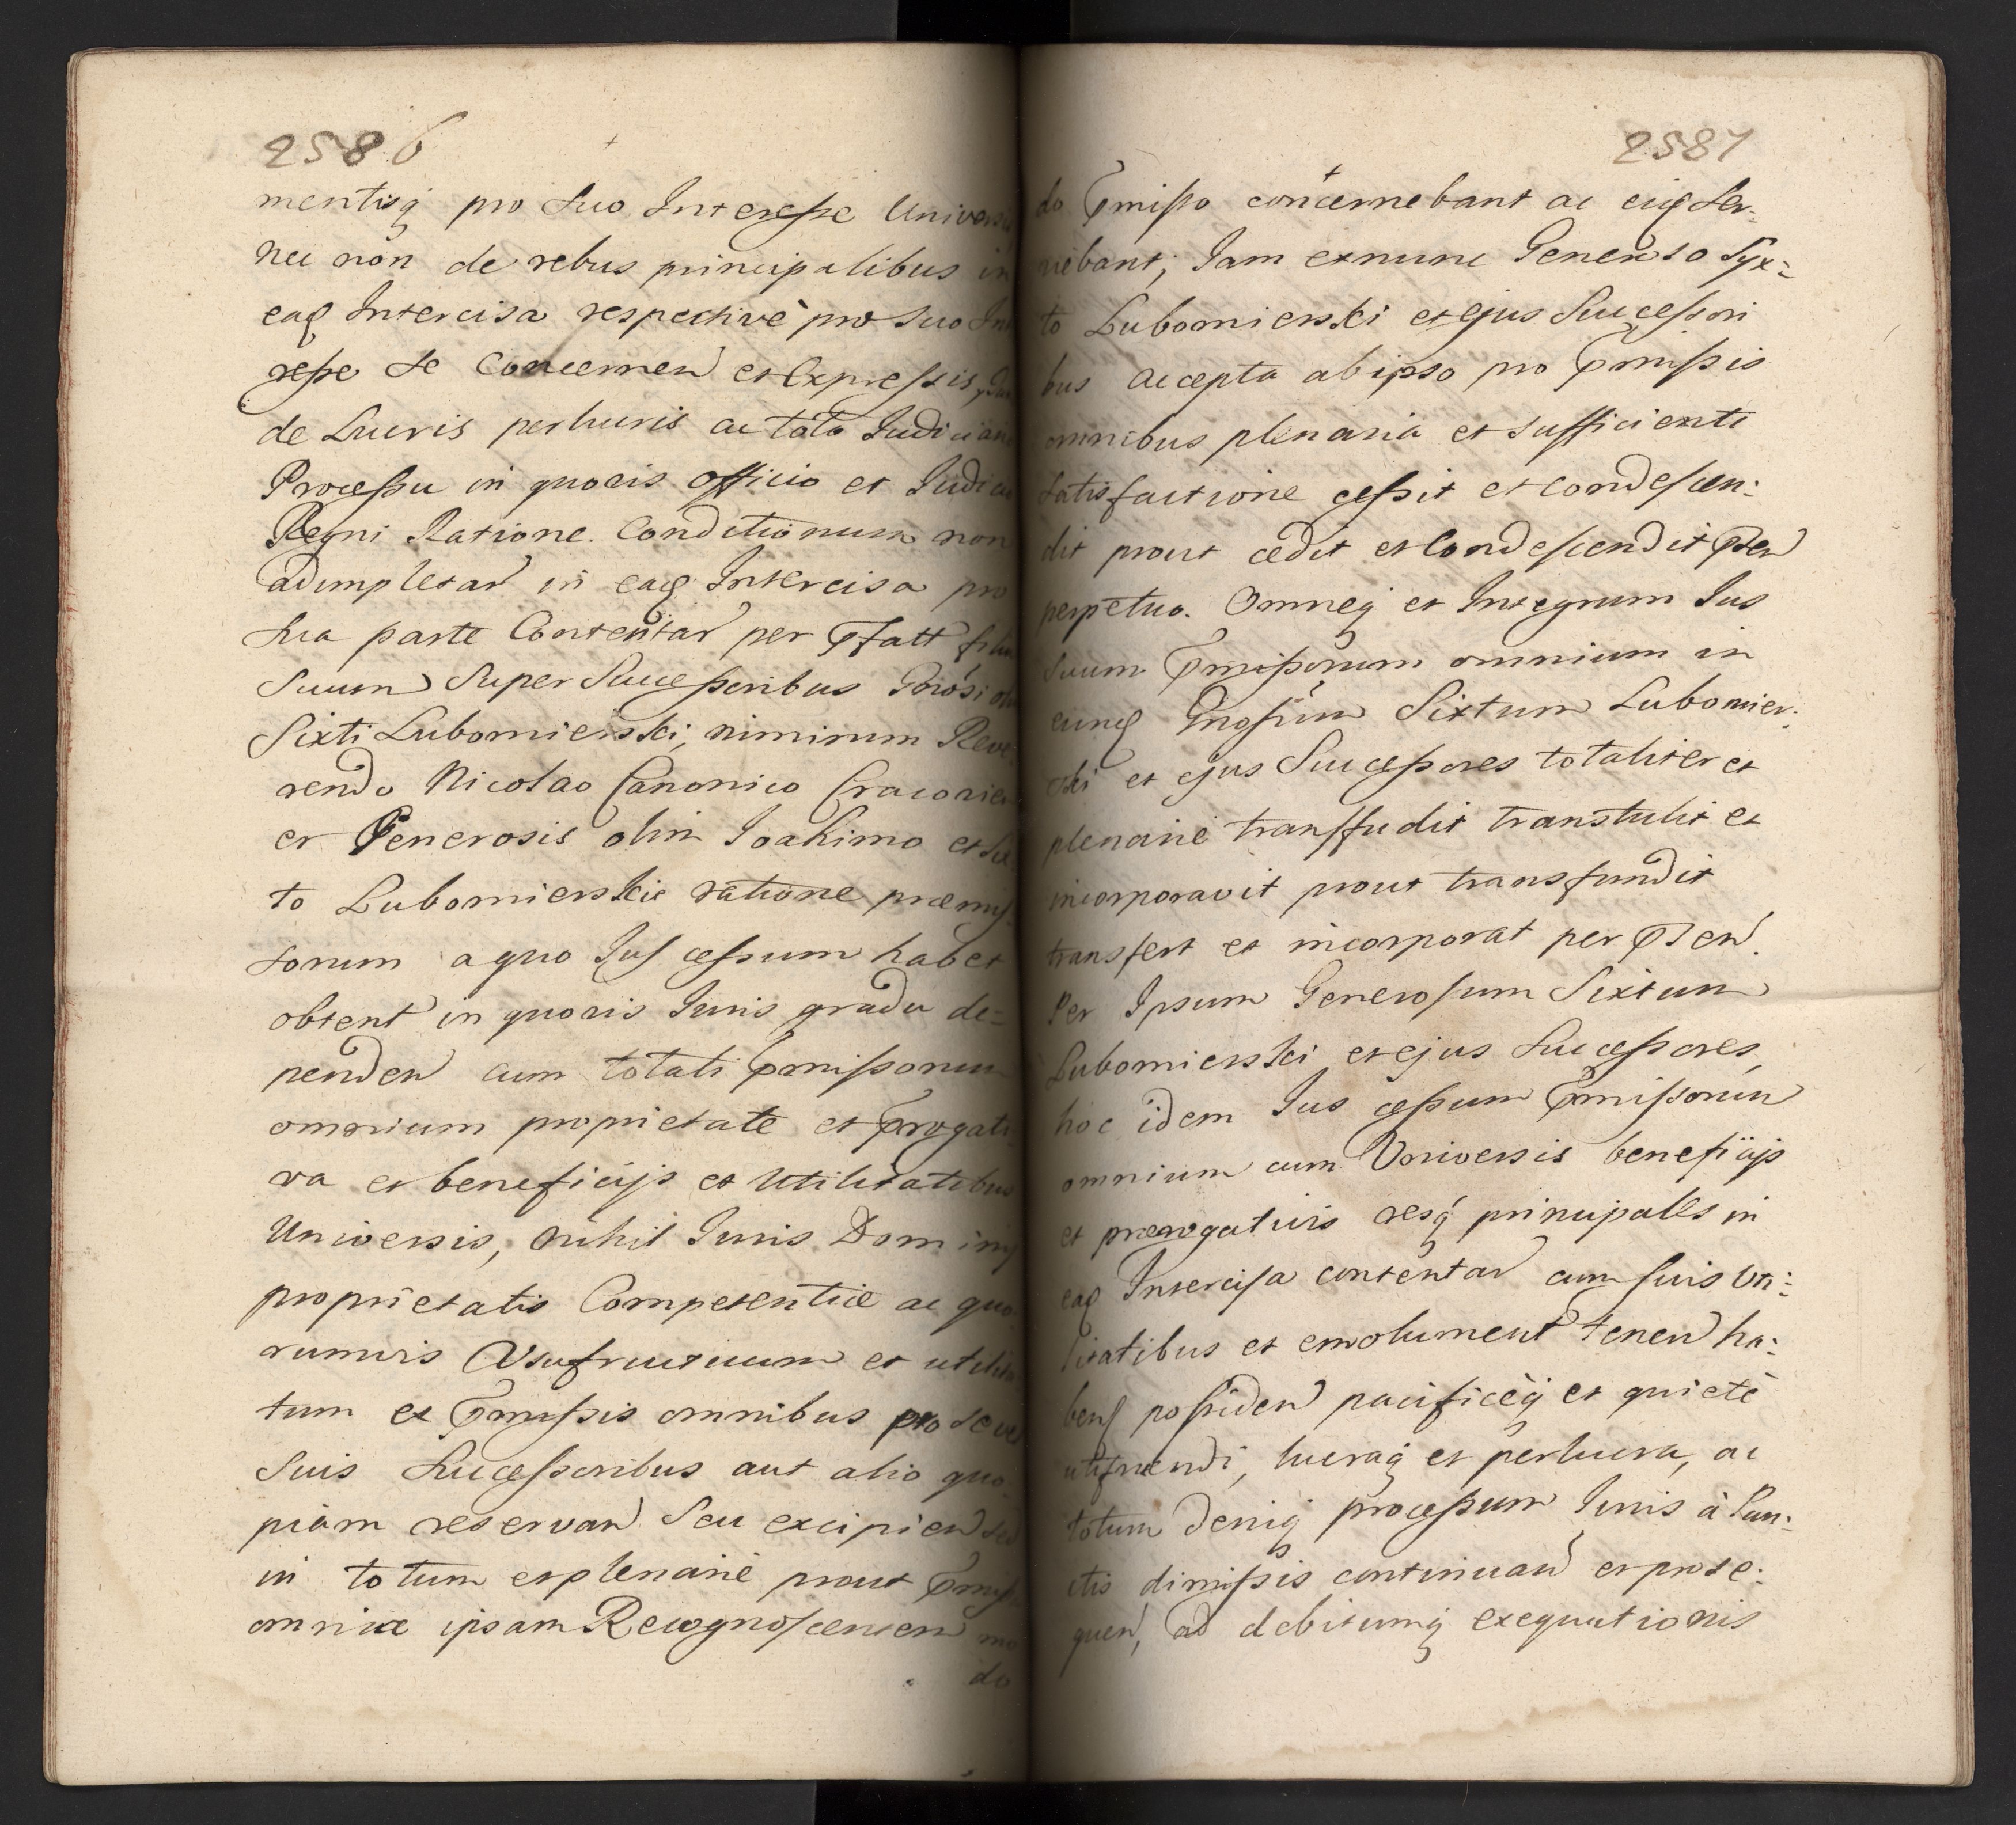 2586
mentisq pro Suo Interesse Univers
nec non de rebus principalibus in
eaq Intercisa respectivè pro Suo In
resse se Concernen et Expressis,
de Lucris perlucris ac toto Judician
Processu in quovis officio et Judi
Regni Ratione. Conditionum non
adimpletar in eaq Intercisa pro
sua parte Contentar per Pfatt
Suum Super Successoribus Gnosi
Sixti Lubomierski, nimirum Reve
rendo Nicolao Canonico Cracovien
et Generosis olim Joakimo et Six
to Lubomierskie ratione præmis
sorum a quo Jus cessum habet
obtent in quovis Juris gradu de=
penden cum totali Pmissorum
omnium proprietate et Progati
va et beneficijs et Utilitatibus
Universis, nihil Juris Dominij
proprietatis Competentiæ ac quo
rumvis Usufructuum et utilita
tum ex Pmissis omnibus pro se vel
Suis Successoribus aut alio quo
piam reservan Seu excipien
in totum et plenariè prout Pmiss
omnia ipsam Recognoscentem mo
do
2587
do Pmisso concernebant ac eiq Ser-
viebant, Jam exnunc Generoso Syx=
to Lubomierski et ejus Successori
bus accepta ab ipso pro Pmissis
omnibus plenaria et sufficienti
satisfactione cessit et condescen:
dit prout cedit et Condescendit Pen
perpetuo. Omneq et Integrum Jus
Suum Pmissorum omnium in
eunq Gnosum Sixtum Lubomier:
ski et ejus Successores totaliter et
plenariè transfudit transtulit et
incorporavit prout transfundit
transfert et incorporat per Psen.
Per Ipsum Generosum Sixtum
Lubomierski et ejus Successores,
hoc idem Jus cessum Pmissorum
omnium cum Universis beneficijs
et prærogativis resq principales in
eaq Intercisa contentar cum suis Uti:
litatibus et emolument tenen ha:
ben possiden pacificèq et quietè
utifruendi, lucraq et perlucra, ac
totum deniq processum Juris à Pun:
ctis dimissis continuan et prose:
quen, ad debitumq exequutionis